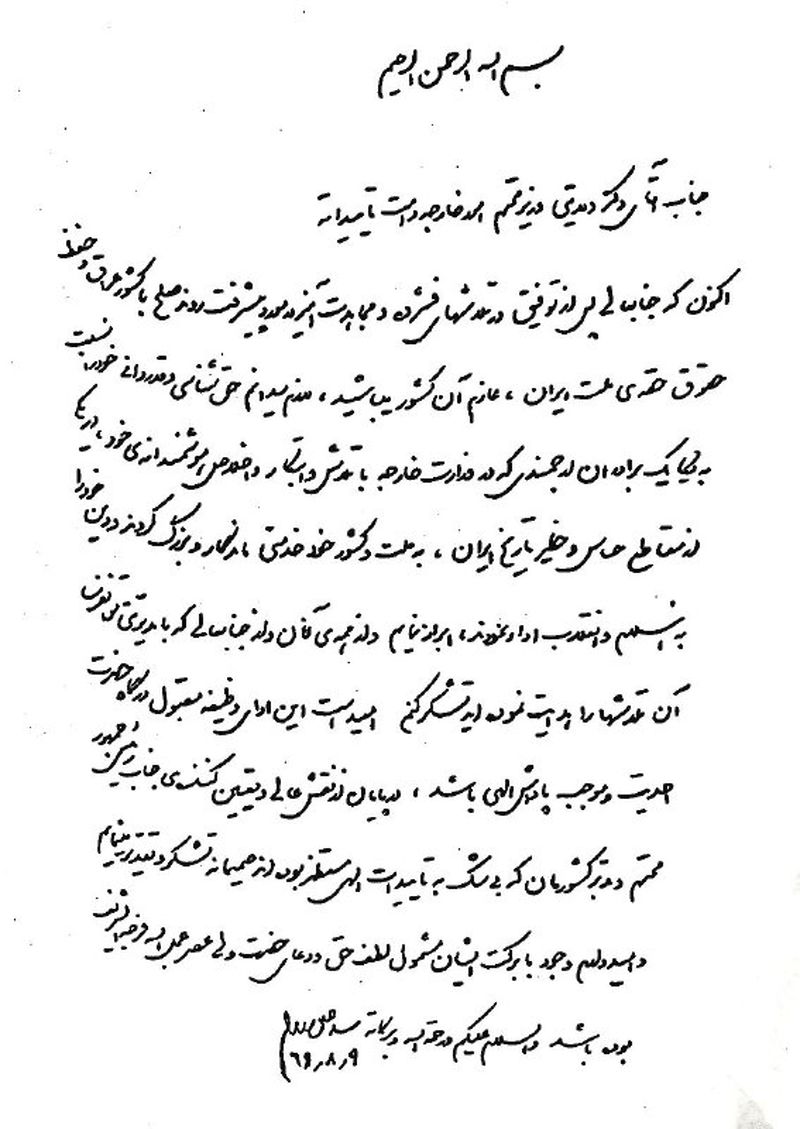 بسم الله الرحمن الرحیم
جناب آقای دکتر ولایتی وزیر محترم امور خارجه دامت تأییداته
اکنون که جنابعالی پس از توفیق در تلاشهای فشرده و مجاهدت‌آمیز در مورد پیشرفت روند صلح با کشور عراق و حفظ
حقوق حقه‌ی ملت ایران ، عازم آن کشور میباشید ، لازم میدانم حق‌شناسی و قدردانی خود را نسبت
به یکایک برادران ارجمندی که در وزارت خارجه با تلاش و ابتکار و اخلاص هوشمندانه‌ی خود در یکی
از مقاطع حساس و خطیر تاریخ ایران ، به ملت و کشور خود خدمتی ماندگار و بزرگ کردند و دین خود را
به اسلام و انقلاب ادا نمودند ، ابراز نمایم و از همه‌ی آنان و از جنابعالی که با مدیریتی قوی
آن تلاشها را هدایت نموده‌اید تشکر کنم امید است این ادای وظیفه مقبول درگاه حضرت
احدیت و موجب پاداش الهی باشد ، در پایان از نقش عالی و تعیین کننده‌ی جناب رئیس جمهور
محترم و مدبر کشورمان که بی‌شک به تأییدات الهی مستظهر بوده‌اند صمیمانه تشکر و تقدیر مینمایم
و امیدوارم وجود با برکت ایشان مشمول لطف حق و دعای حضرت ولی عصر عجل الله فرجه الشریف
بوده باشد والسلام علیکم و رحمة الله و برکاته سید علی خامنه‌ای
۶۹٫۸٫۹